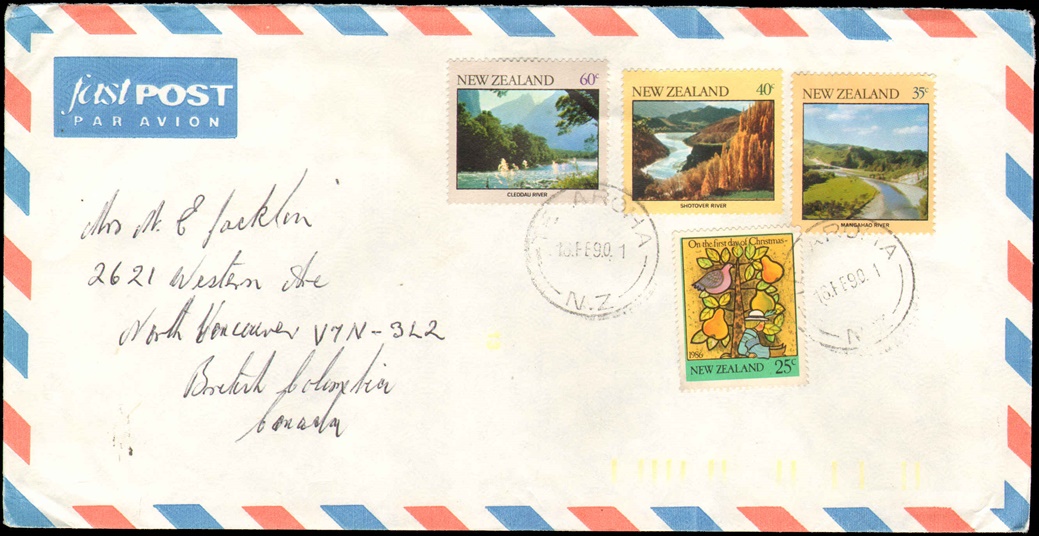 fast POST
PAR AVION
NEW ZEALAND 60c
CLEDDAU RIVER
NEW ZEALAND 40c
SHOTOVER RIVER
NEW ZEALAND 35c
MANGAHAO RIVER
On the first day of Christmas
1986
NEW ZEALAND 25c
AROHA
16.FE90. 1
N.Z.
AROHA
16.FE90. 1
N
Mrs N. E Jacklin
2621 Western Ave
North Vancouver V7N-3L2
British Columbia
Canada